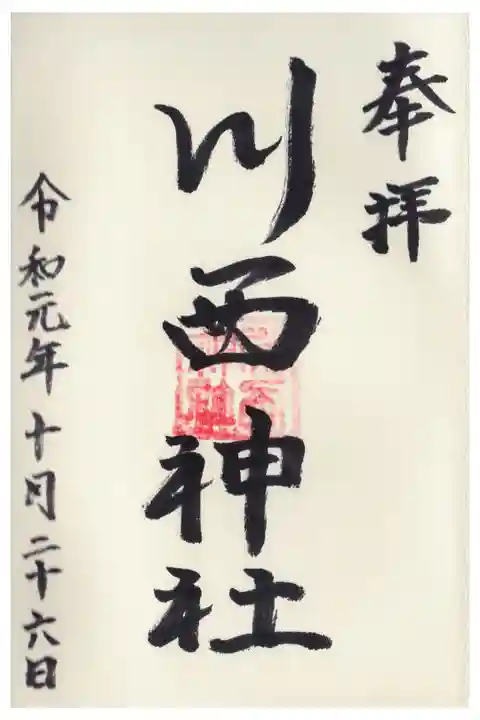 奉拝
川西神社
令和元年十月二十六日